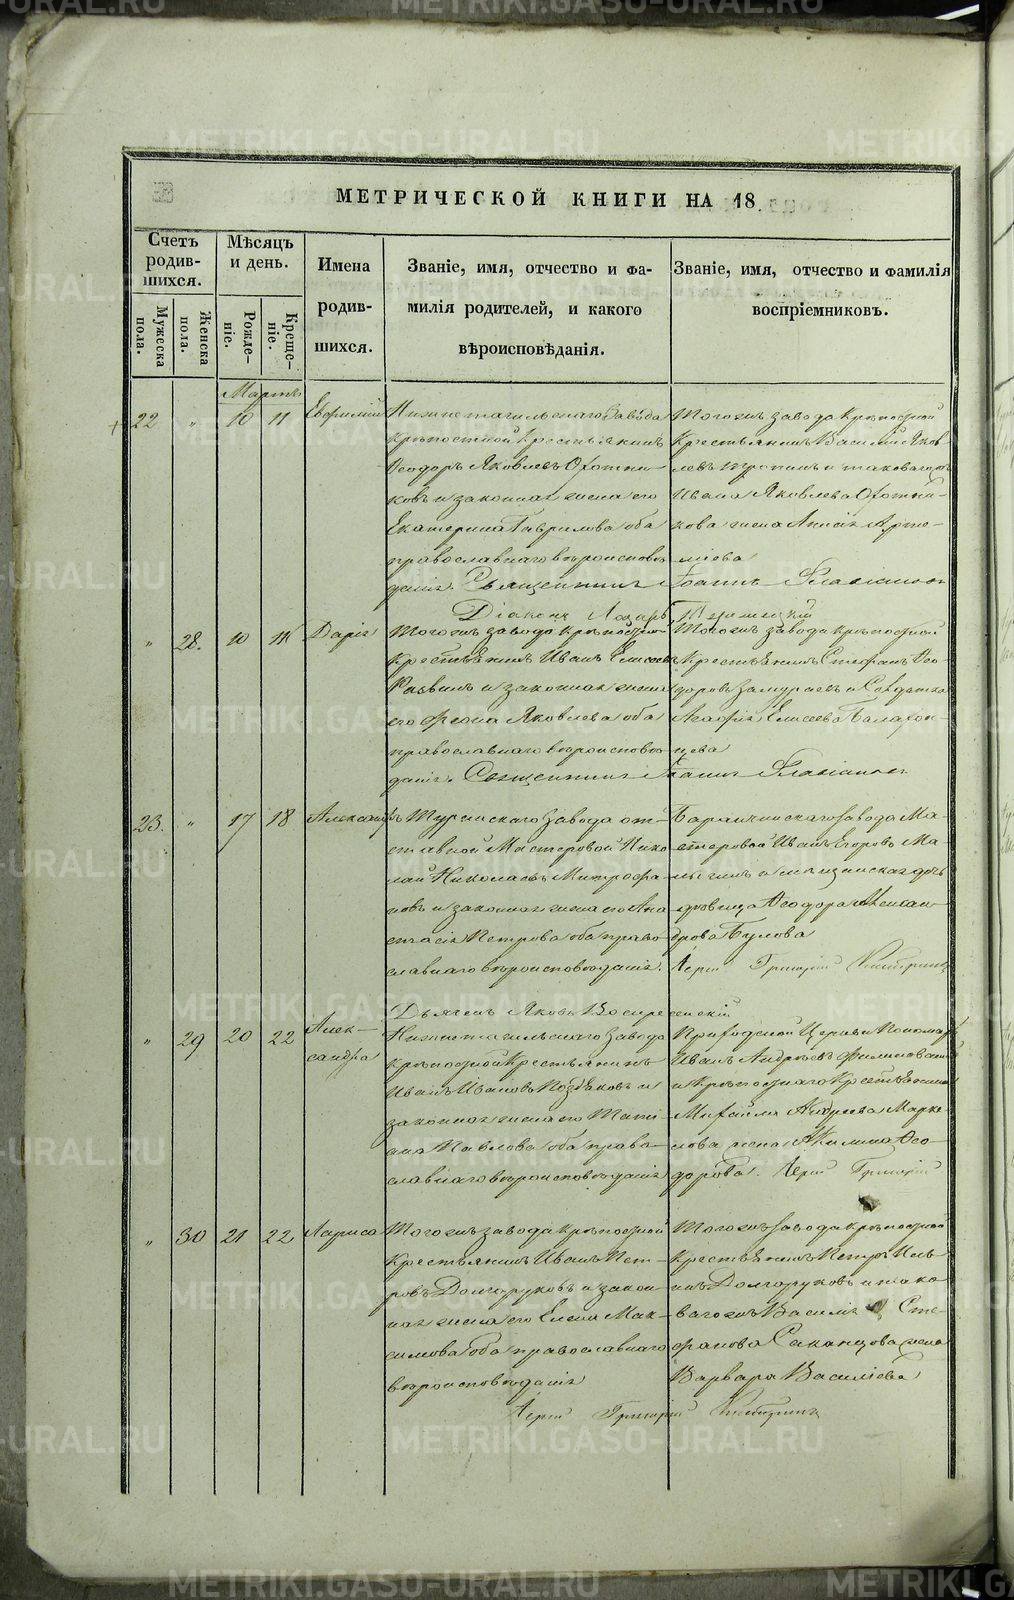 МЕТРИЧЕСКОЙ КНИГИ НА 18
Счетъ родив-шихся.
Мужеска пола.
Женска пола.
Мѣсяцъ и день.
Рожде-ніе.
Креще-ніе.
Имена
родив-
шихся.
Званіе, имя, отчество и фа-
милія родителей, и какого
вѣроисповѣданія.
Званіе, имя, отчество и фамилія
воспріемниковъ.
Мартъ
22 " 10 11 Евфимій
Нижнетагильскаго завода
крѣпостной крестьянинъ
Ѳеодоръ Яковлевъ Охотни-
ковъ и законная жена его
Екатерина Гаврилова оба
православнаго вѣроисповѣ
данія.
Тогожъ завода крѣпостной
крестьянинъ Василій Яков
левъ и таковагожъ
Ивана Яковлева Охотни-
кова жена Анисія Арте-
міева
Священникъ Іоаннъ
Діаконъ Лазарь
" 28. 10 11 Дарія
Тогожъ завода крѣпостной
крестьянинъ Иванъ Елисеевъ
и законная жена
его Яковлева оба
православнаго вѣроисповѣ
данія.
Тогожъ завода крѣпостной
крестьянинъ Стефанъ Ѳео
доровъ и Солдатка
Агафія Елисеева
Священникъ Іоаннъ
23. " 17 18 Александръ
Туринскаго завода от-
ставной Мастеровой Нико
лай Николаевъ Митрофа
новъ и законная жена его Ана
стасія Петрова оба право
славнаго вѣроисповѣданія.
Баранчинскаго завода Ма-
стеровой Иванъ Егоровъ Ма-
лыгинъ и
дѣвица Ѳеодора Алексан
дрова Булова
Іерей Григорій
Дьячекъ Яковъ Воскресенскій
" 29 20 22 Алек-
сандра
Нижнетагильскаго завода
крѣпостной крестьянинъ
Иванъ Ивановъ Поздѣяковъ и
законная жена его Тати
ана Павлова оба право-
славнаго вѣроисповѣданія
Приходской Церкви Пономарь
Иванъ Андреевъ
и крѣпостнаго крестьянина
Михаила Андреева Марке
лова жена Акилина Ѳео
дорова. Іерей Григорій
" 30 21 22 Лариса
Тогожъ завода крѣпостной
крестьянинъ Иванъ Пет-
ровъ Долгоруковъ и закон-
ная жена его Елена Мак-
симова оба православнаго
вѣроисповѣданія
Тогожъ завода крѣпостной
крестьянинъ Петръ Иль-
инъ Долгоруковъ и тако-
вагожъ Василія Сте
фанова Саканцова жена
Варвара Василіева
Іерей Григорій
METRIKI.GASO-URAL.RU